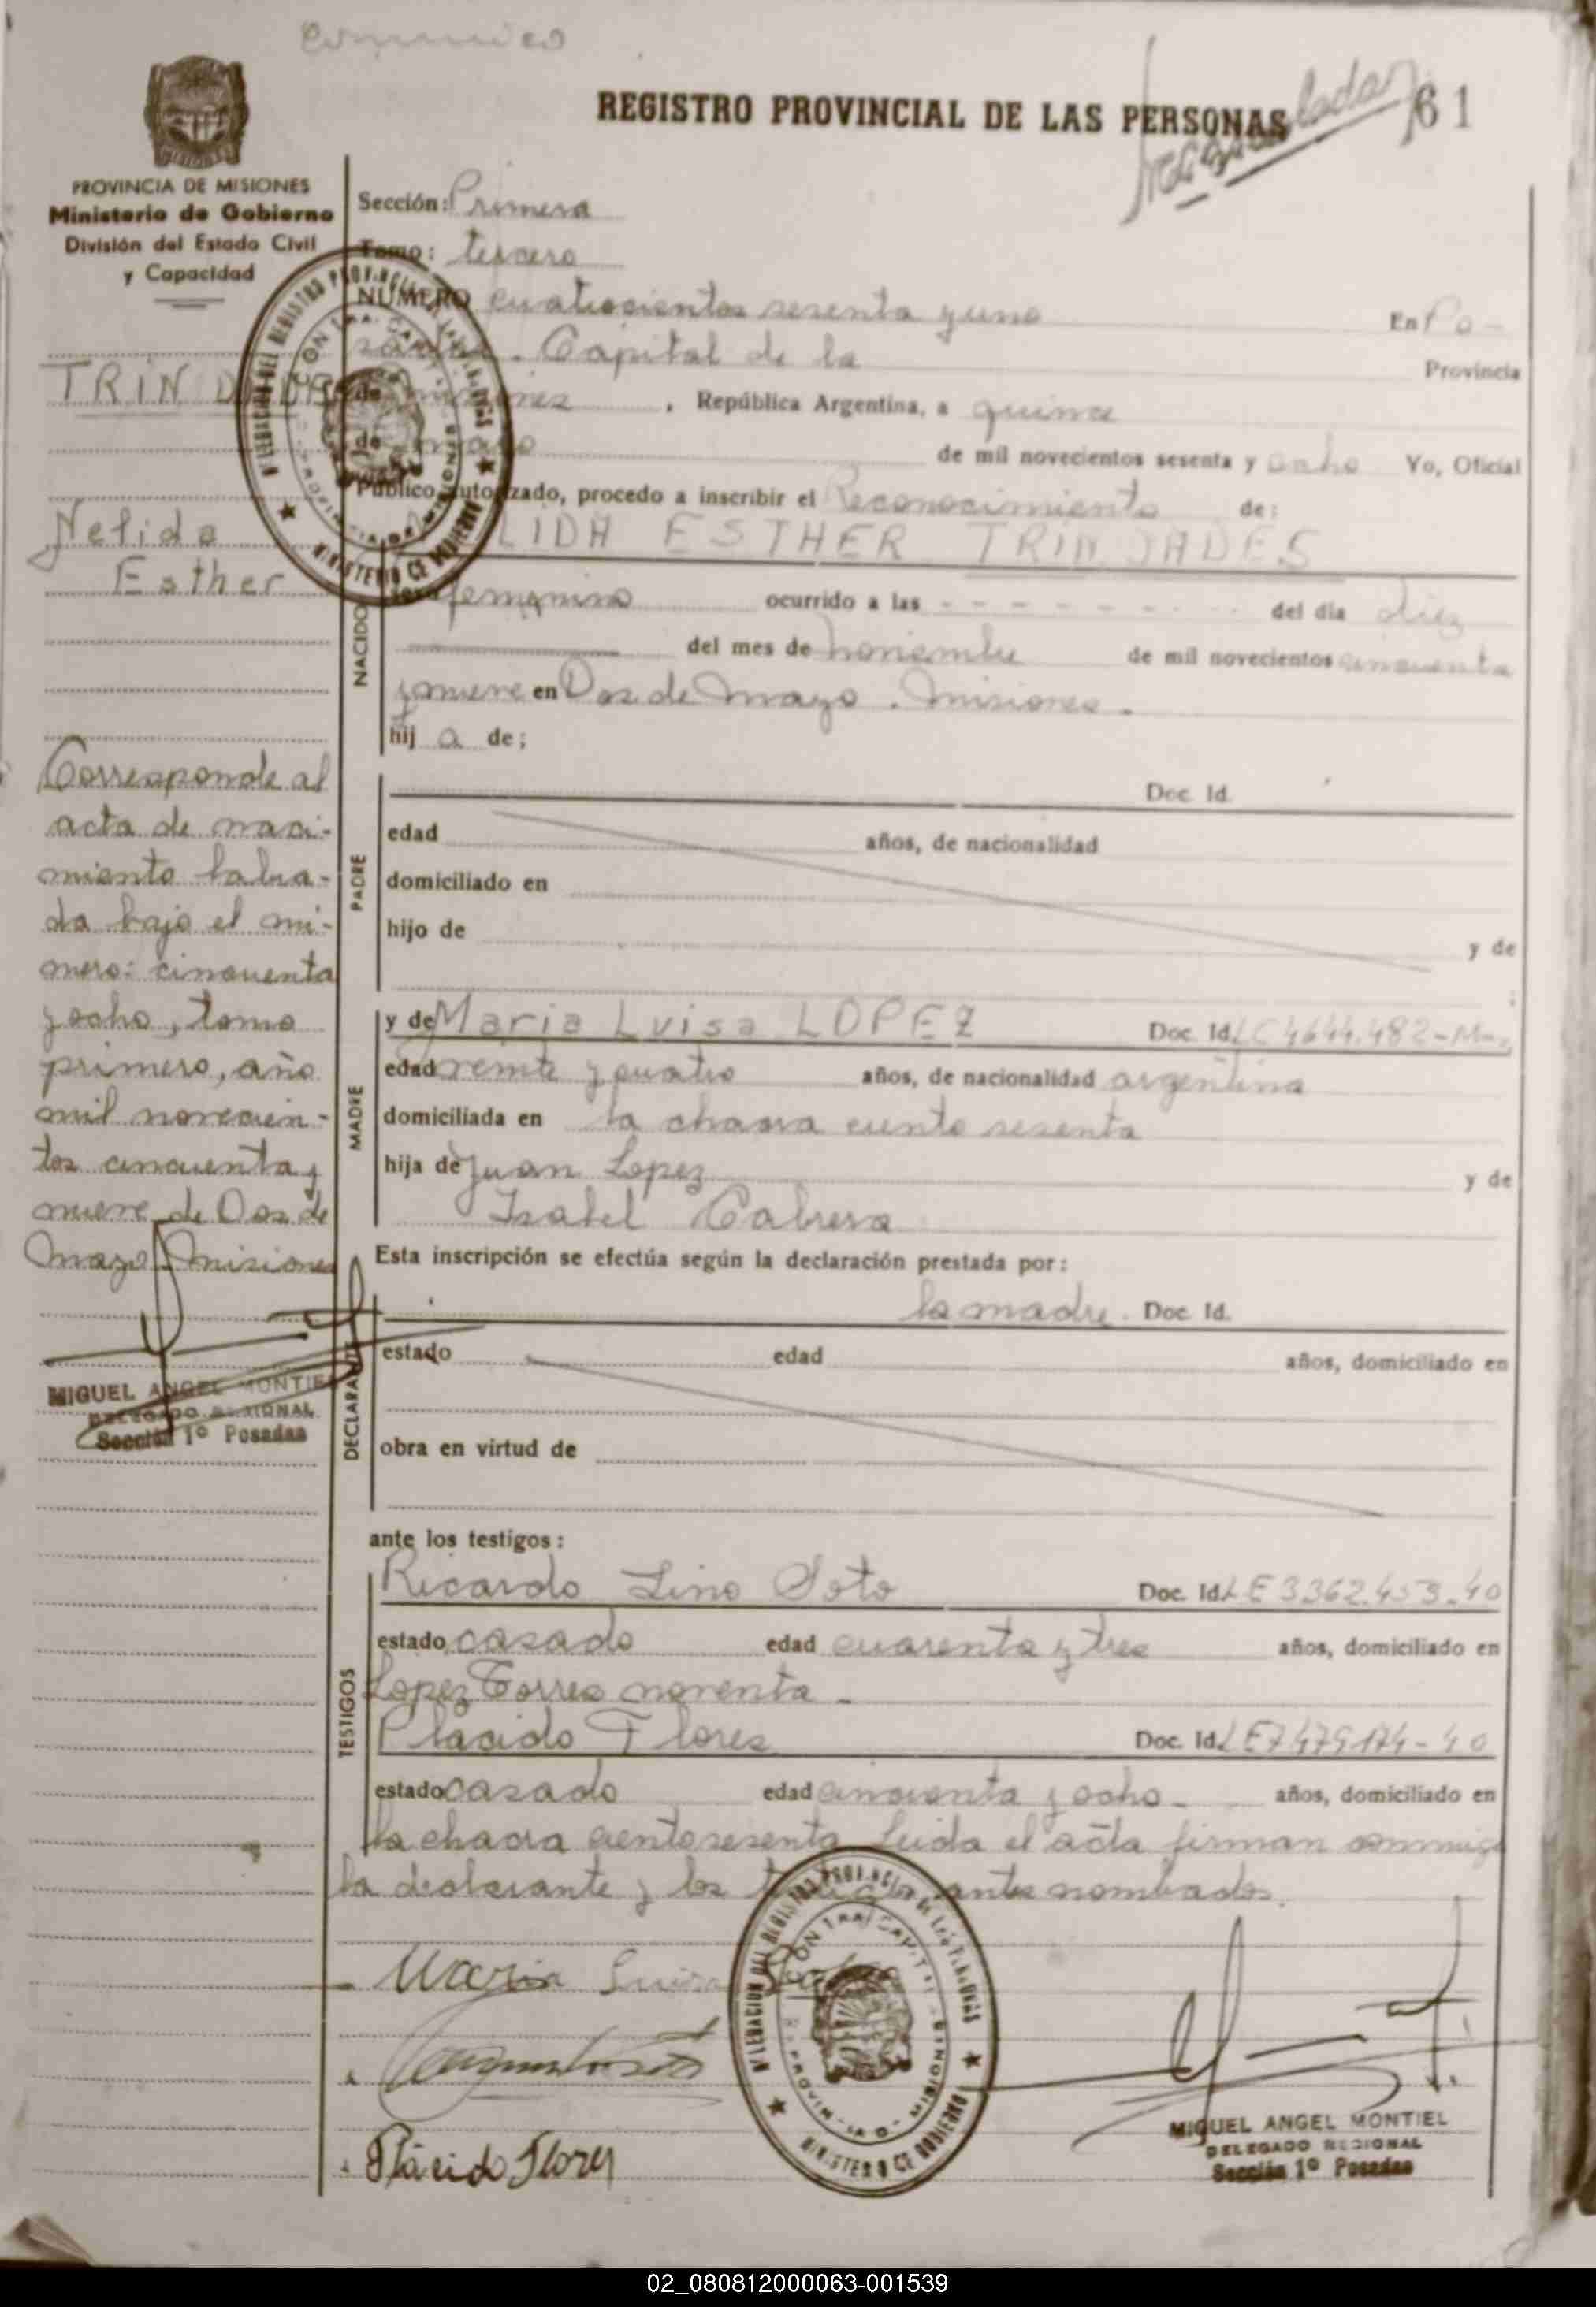 REGISTRO PROVINCIAL DE LAS PERSONAS
61
PROVINCIA DE MISIONES
Ministerio de Gobierno
División del Estado Civil
y Capacidad
Sección: Primera
Tomo: tercero
NUMERO cuatrocientos sesenta y uno En Po-
sadas. Capital de la Provincia
de misiones, República Argentina, a quince
de mayo de mil novecientos sesenta y ocho Yo, Oficial
Público autorizado, procedo a inscribir el Reconocimiento de:
NELIDA ESTHER TRINDADES
TRINDADES
Nelida
Esther
NACIDO
sexo femenino ocurrido a las - - - - - - - del día diez
del mes de noviembre de mil novecientos cincuenta
y nueve en Dos de Mayo. Misiones.-
hij a de;
Corresponde al
acta de naci-
miento labra-
da bajo el nú-
mero: cincuenta
y ocho, tomo
primero, año
mil novecien-
tos cincuenta y
nueve de Dos de
Mayo Misiones
MIGUEL ANGEL MONTIEL
DELEGADO REGIONAL
Sección 1º Posadas
PADRE
Doc. Id.
edad años, de nacionalidad
domiciliado en
hijo de y de
;
MADRE
y de Maria Luisa LOPEZ Doc. Id. LC 4644.482-M-
edad veinte y cuatro años, de nacionalidad argentina
domiciliada en la chacra ciento sesenta
hija de Juan Lopez y de
Isabel Cabrera
Esta inscripción se efectúa según la declaración prestada por:
DECLARANTE
la madre. Doc. Id.
estado edad años, domiciliado en
obra en virtud de
ante los testigos:
TESTIGOS
Ricardo Lino Soto Doc. Id. LE 3362.453-40
estado casado edad cuarenta y tres años, domiciliado en
Lopez Torres noventa -
Placido Flores Doc. Id. LE7479174-40
estado casado edad cincuenta y ocho - años, domiciliado en
la chacra ciento sesenta Leida el acta firman conmigo
la declarante y los testigos antes nombrados.
Maria Luisa
Plácido Flores
MIGUEL ANGEL MONTIEL
DELEGADO REGIONAL
Sección 1º Posadas
02_080812000063-001539